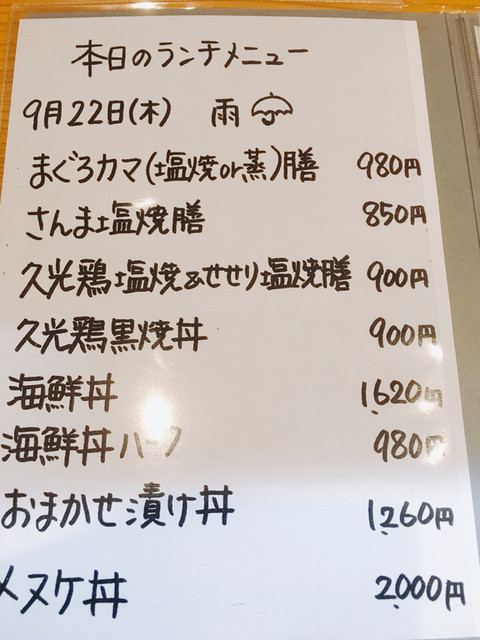 本日のランチメニュー
9月22日(木) 雨
まぐろカマ(塩焼or蒸)膳 980円
さんま塩焼膳 850円
久光鶏塩焼&せせり塩焼膳 900円
久光鶏黒焼丼 900円
海鮮丼 1620円
海鮮丼ハーフ 980円
おまかせ漬け丼 1,260円
メヌケ丼 2,000円